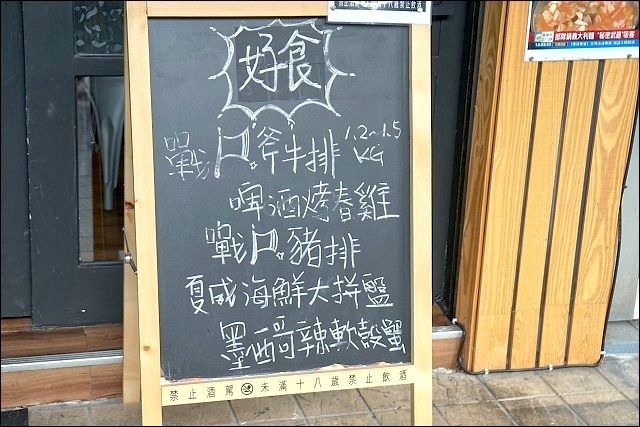 未滿十八歲禁止飲酒
好食
戰斧牛排 1.2~1.5 KG
啤酒烤春雞
戰豬排
夏威海鮮大拼盤
墨西哥辣軟殼蟹
禁止酒駕 未滿十八歲禁止飲酒